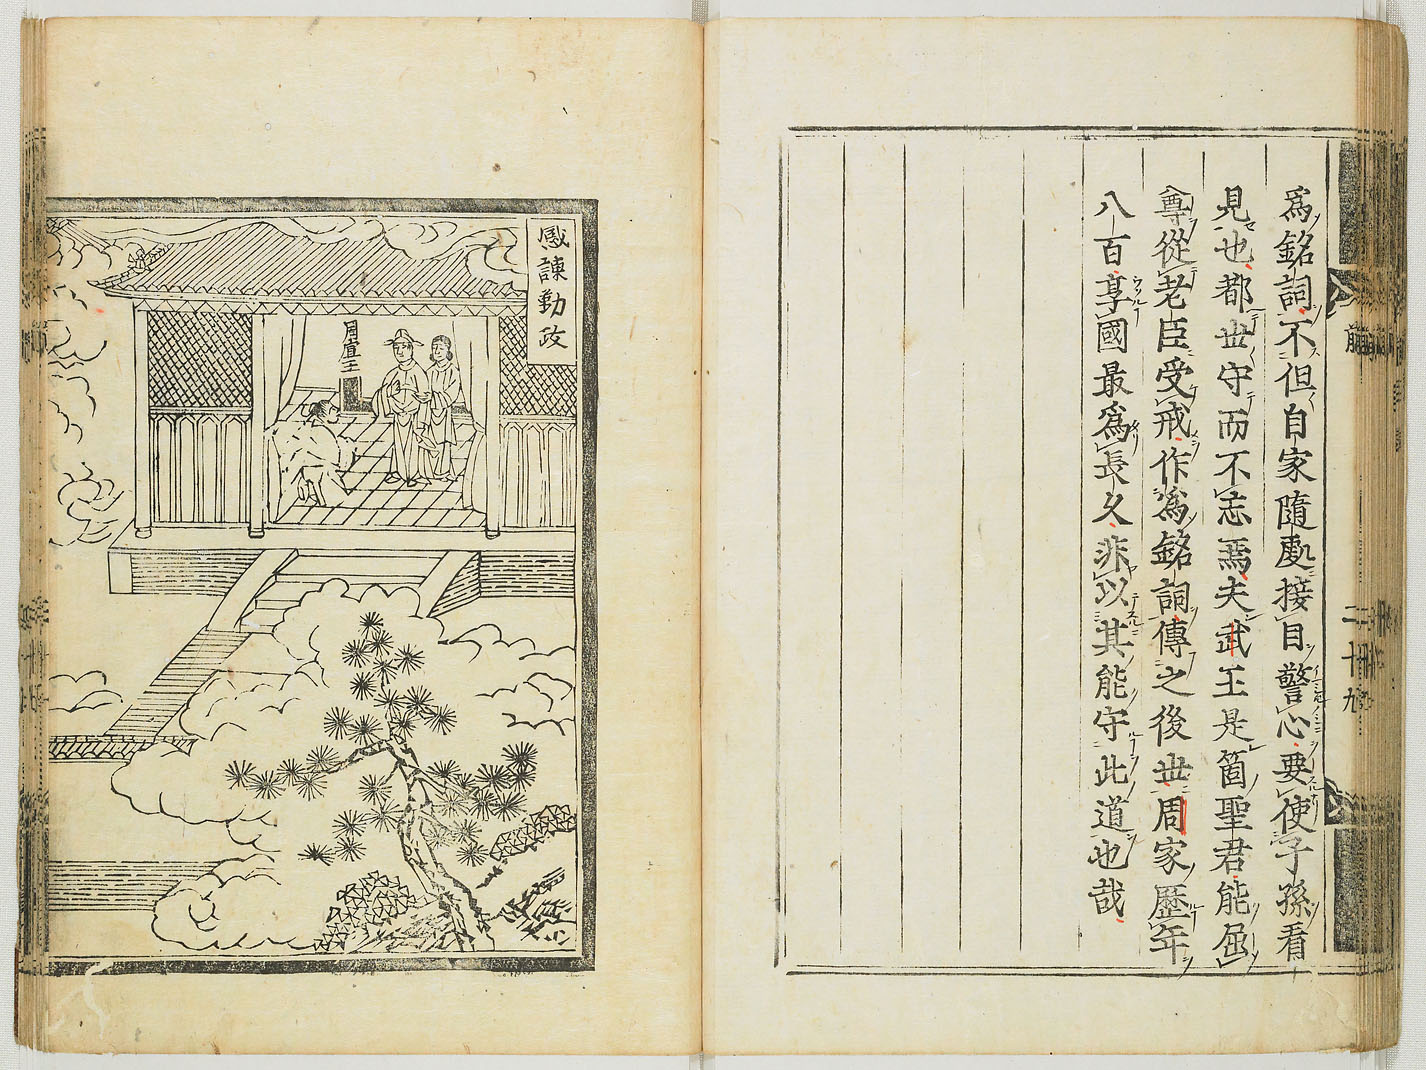 爲銘詞不但自家隨處接目警心要使子孫看
見也都世守而不忘焉夫武王是箇聖君能屈
尊從老臣受戒作爲銘詞傳之後世周家歷年
八百享國最爲長久非以其能守此道也哉
二十九
感諫勤政
周宣王